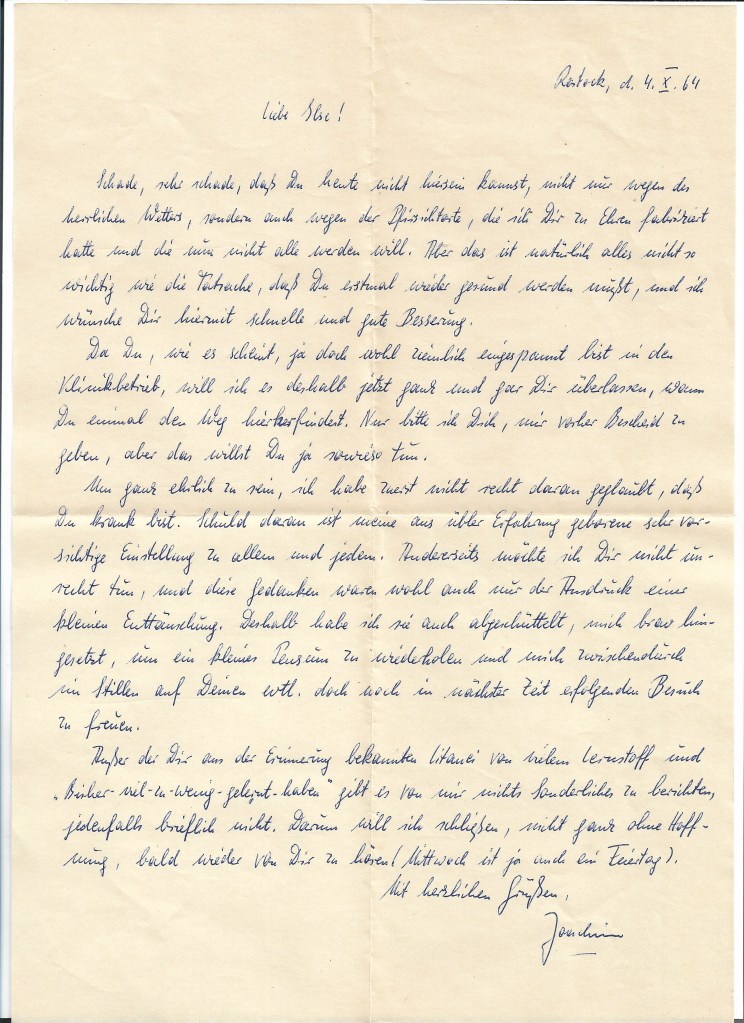 Rostock, d. 4. X. 64
Liebe Ilse!
Schade, sehr schade, daß Du heute nicht hiersein kannst, nicht nur wegen des
herrlichen Wetters, sondern auch wegen der Pfirsichtorte, die ich Dir zu Ehren fabriziert
hatte und die nun nicht alle werden will. Aber das ist natürlich alles nicht so
wichtig wie die Tatsache, daß Du erstmal wieder gesund werden mußt, und ich
wünsche Dir hiermit schnelle und gute Besserung.
Da Du, wie es scheint, ja doch wohl ziemlich eingespannt bist in den
Klinikbetrieb, will ich es deshalb jetzt ganz und gar Dir überlassen, wann
Du einmal den Weg hierherfindest. Nur bitte ich Dich, mir vorher Bescheid zu
geben, aber das willst Du ja sowieso tun.
Um ganz ehrlich zu sein, ich habe zuerst nicht recht daran geglaubt, daß
Du krank bist. Schuld daran ist meine aus übler Erfahrung geborene sehr vor-
sichtige Einstellung zu allem und jedem. Andererseits möchte ich Dir nicht un-
recht tun, und diese Gedanken waren wohl auch nur der Ausdruck einer
kleinen Enttäuschung. Deshalb habe ich sie auch abgeschüttelt, mich brav hin-
gesetzt, um ein kleines Pensum zu wiederholen und mich zwischendurch
im Stillen auf Deinen evtl. doch noch in nächster Zeit erfolgenden Besuch
zu freuen.
Außer der Dir aus der Erinnerung bekannten Litanei von vielem Lernstoff und
„Bisher-viel-zu-wenig-gelernt-haben" gibt es von mir nichts Sonderliches zu berichten,
jedenfalls brieflich nicht. Darum will ich schließen, nicht ganz ohne Hoff-
nung, bald wieder von Dir zu hören (Mittwoch ist ja auch ein Feiertag).
Mit herzlichen Grüßen,
Joachim